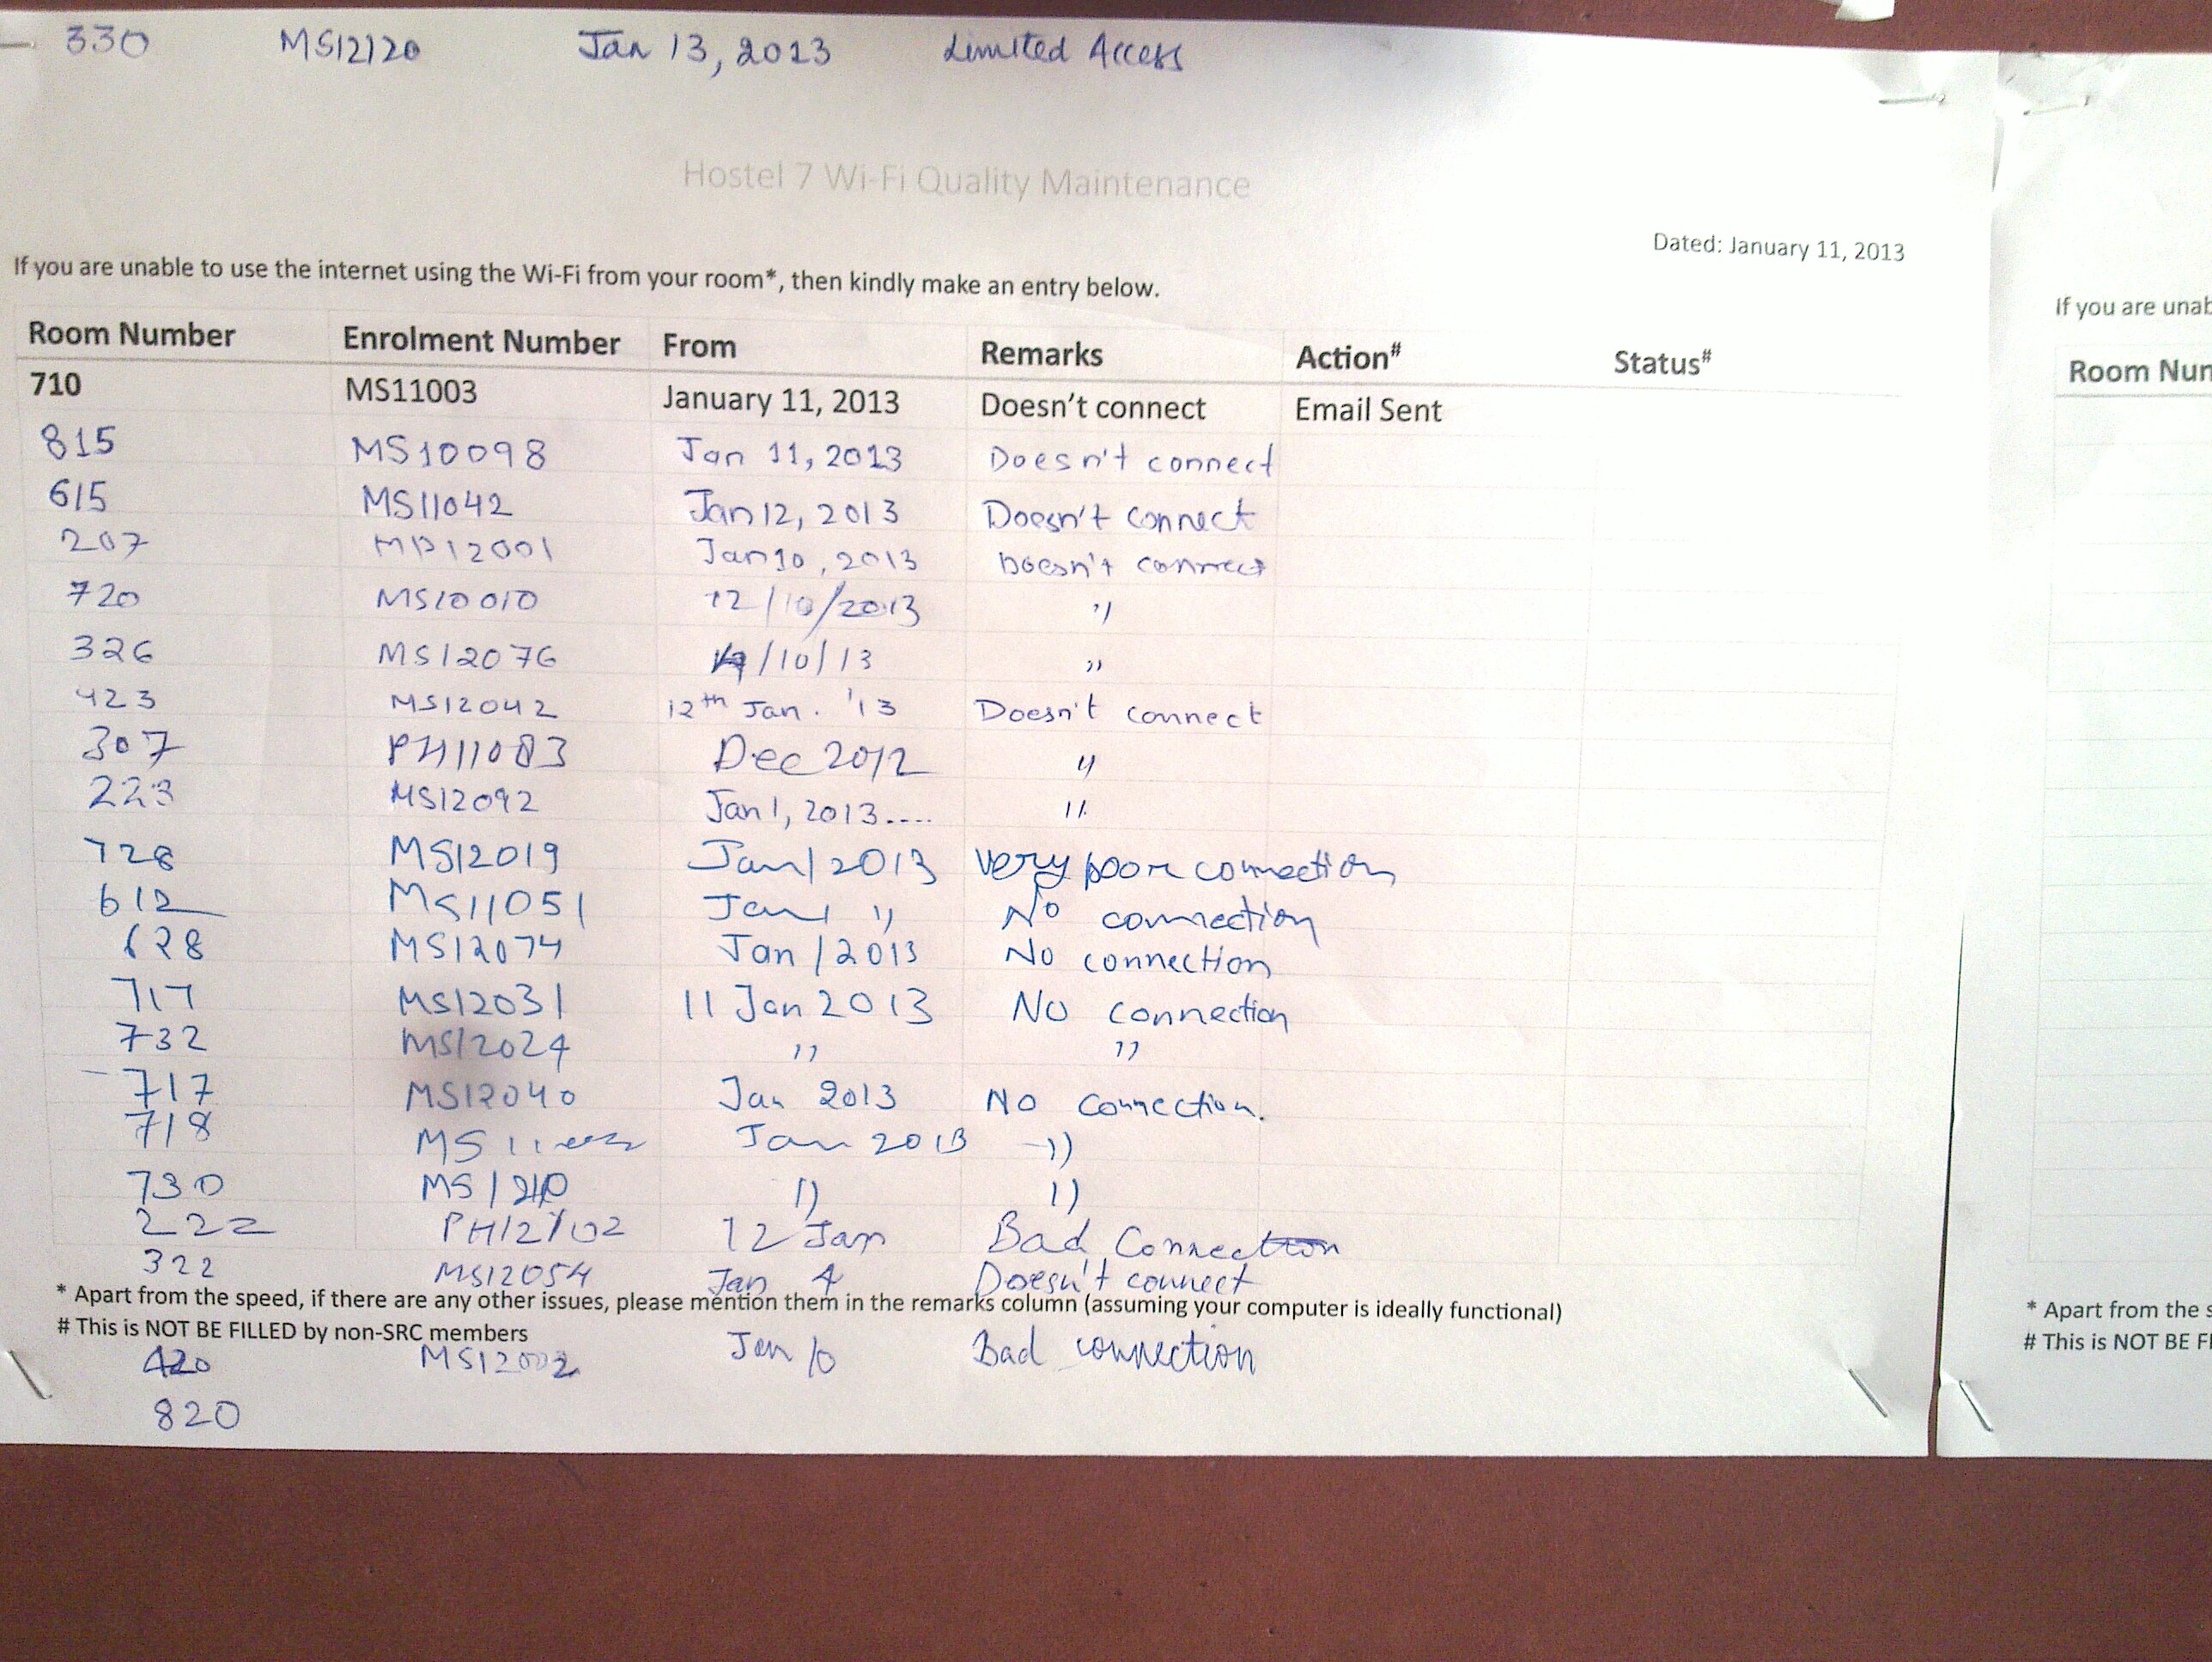 330 MS12120 Jan 13, 2013 Limited Access
Hostel 7 Wi-Fi Quality Maintenance
Dated: January 11, 2013
If you are unable to use the internet using the Wi-Fi from your room*, then kindly make an entry below.
Room Number Enrolment Number From Remarks Action# Status#
710 MS11003 January 11, 2013 Doesn't connect Email Sent
815 MS10098 Jan 11, 2013 Doesn't connect
615 MS11042 Jan 12, 2013 Doesn't connect
207 MP12001 Jan 10, 2013 Doesn't connect
720 MS10010 12/10/2013 "
326 MS12076 /10/13 "
423 MS12042 12th Jan. '13 Doesn't connect
307 PH11083 Dec 2012 "
223 MS12092 Jan 1, 2013.... "
728 MS12019 Jan 1 2013 very poor connection
612 MS11051 Jan 1 " No connection
628 MS12074 Jan 1 2013 No connection
717 MS12031 11 Jan 2013 No connection
732 MS12024 " "
717 MS12040 Jan 2013 No connection.
718 Jan 2013 "
730 " "
222 12 Jan Bad Connection
322 MS12054 Jan 4 Doesn't connect
* Apart from the speed, if there are any other issues, please mention them in the remarks column (assuming your computer is ideally functional)
# This is NOT BE FILLED by non-SRC members
420 MS12002 Jan 10 Bad connection
820
If you are unab
Room Num
* Apart from the s
# This is NOT BE FI